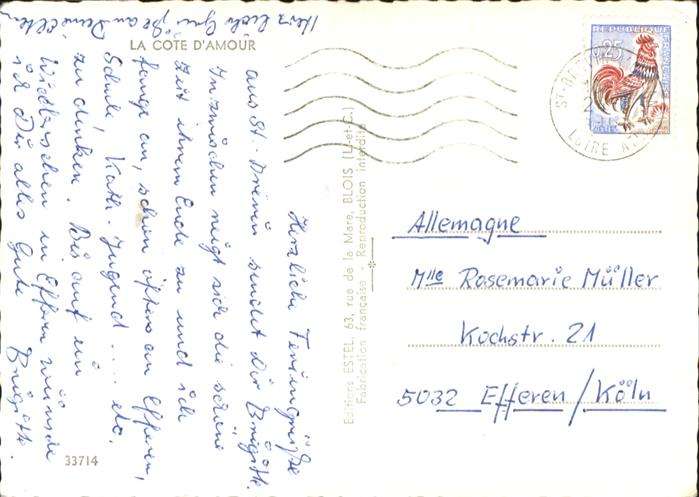 LA COTE D'AMOUR
Herzliche Feriengrüße
aus St. Breven sendet Dir Brigitte.
Inzwischen neigt sich die schöne
Zeit ihrem Ende zu und ich
fange an, schon öfters an Efferen,
Schule, Kath. Jugend .... etc.
zu denken. Bis auf ein
Wiedersehen in Efferen wünsche
ich Dir alles Gute
Brigitte.
Herzlich
33714
Editions ESTEL, 63, rue de la Mare, BLOIS (L.-et-C.)
Fabrication française - Reproduction interdite
0,25
LOIRE
Allemagne
Mlle Rosemarie Müller
Kochstr. 21
5032 Efferen/Köln